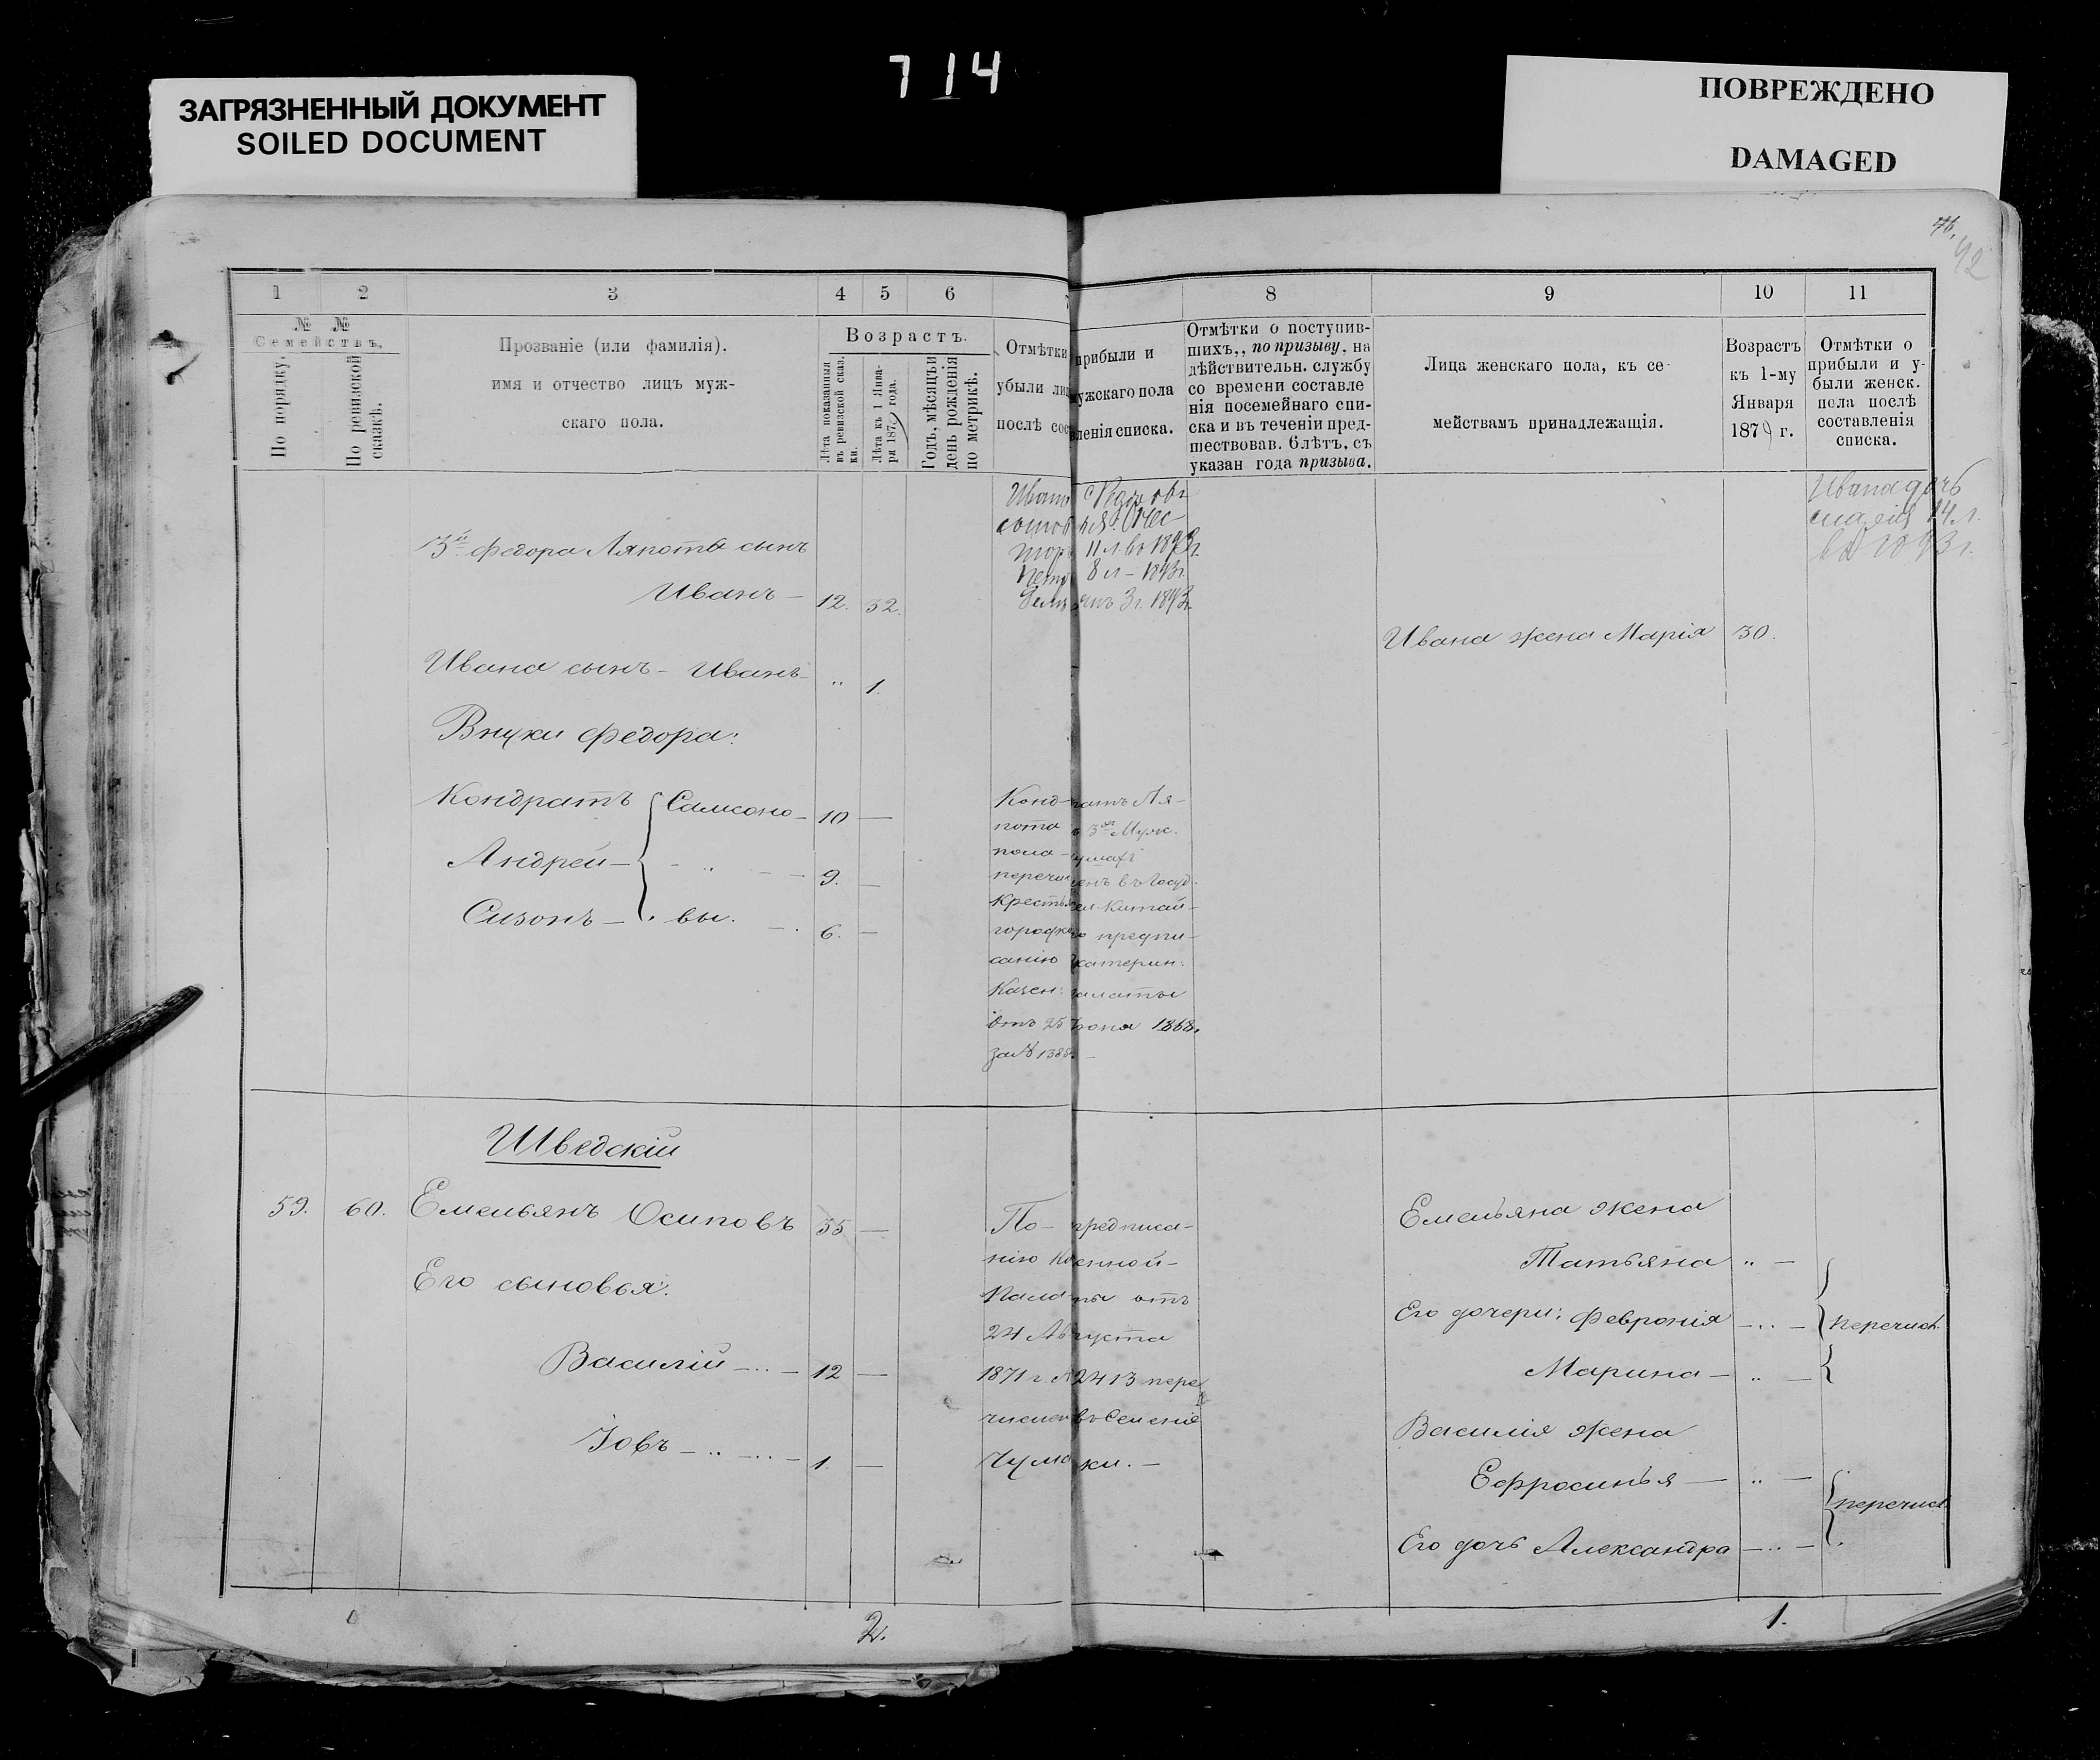 714
ЗАГРЯЗНЕННЫЙ ДОКУМЕНТ
SOILED DOCUMENT
ПОВРЕЖДЕНО
DAMAGED
42
1 2 3 4 5 6
8 9 10 11
№ № Семействъ.
По порядку.
По ревизской сказкѣ.
Прозваніе (или фамилія).
имя и отчество лицъ муж-
скаго пола.
Возрастъ.
Лѣта показанныя
въ ревизской сказ.
ки.
Лѣта къ 1 Янва-
ря 187 года.
Годъ, мѣсяцъ и
день рожденія
по метрикѣ.
Отмѣтки прибыли и
убыли лиц мужскаго пола
послѣ составленія списка.
Отмѣтки о поступив-
шихъ,, по призыву, на
дѣйствительн. службу
со времени составле
нія посемейнаго спи-
ска и въ теченіи пред-
шествовав. 6 лѣтъ, съ
указан года призыва.
Лица женскаго пола, къ се-
мействамъ принадлежащія.
Возрастъ
къ 1-му
Января
1879 г.
Отмѣтки о
прибыли и у-
были женск.
пола послѣ
составленія
списка.
3й Федора Ляпоты сынъ
Иванъ – 12. 32.
11 л. въ 1893 г.
8 л – 1893 г.
3 г. 1893 г.
Ивана дочь
14 л.
въ 1893 г.
Ивана жена Марія 30.
Ивана сынъ – Иванъ – „ 1.
Внуки Федора:
Кондратъ Самсоно – 10 —
Андрей – „ – – 9. —
Сизонъ – вы. – . 6. —
Кондратъ Ля-
пота 3я Муж.
пола
перечисленъ въ Госуд.
Крестья Китай-
городки по предпи-
санію Екатерин:
Казен: палаты
отъ 25 Іюня 1868.
за № 1388. –
Шведскій
59. 60. Емельянъ Осиповъ 35 —
Его сыновья:
Василій – „ – 12 —
Іовъ – „ – „ – 1. —
По – предписа-
нію Казенной –
Палаты отъ
24 Августа
1871 г. № 2413 пере
числен въ Селеніе
Чумаки. –
Емельяна жена
Татьяна „ –
Его дочери: Февронія – „ – перечисл.
Марина – „ –
Василія жена
Ефросинья — „ –
перечисл
Его дочь Александра – „ –
2.
1.